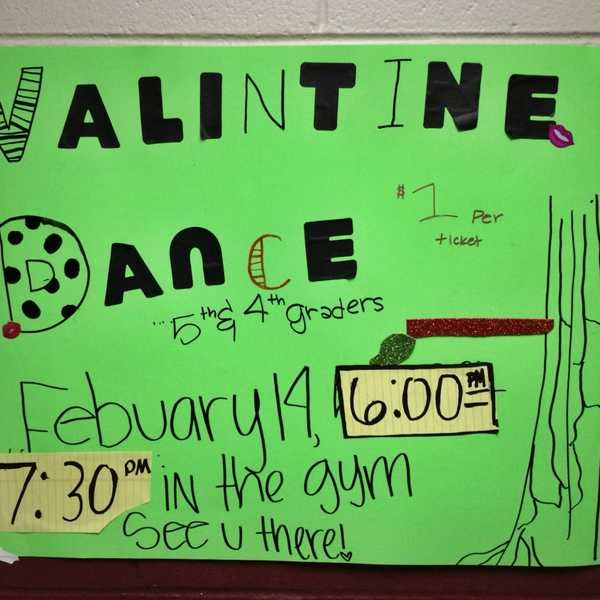 VALINTINE
DANCE
$1 Per
ticket
...5th & 4th graders
Febuary 14, 6:00 PM
7:30 PM in the gym
See u there!